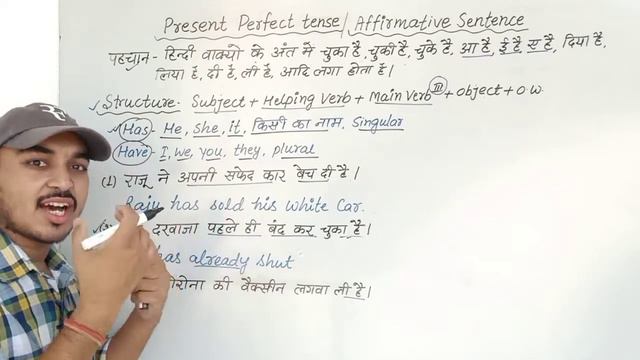 Present Perfect tense/Affirmative Sentence
पहचान - हिन्दी वाक्यो के अंत मे चुका है, चुकी है, चुके है, आ है, ई है, ए है, दिया है,
लिया है, दी है, ली है, आदि लगा होता है।
Structure- Subject + Helping Verb + Main Verb III + object + O.W.
Has - He, She, it, किसी का नाम, Singular
Have - I, we, you, they, plural
(1) राजू ने अपनी सफेद कार बेच दी है।
Raju has sold his white Car.
दरवाजा पहले ही बंद कर चुका है।
has already shut
की वैक्सीन लगवा ली है।